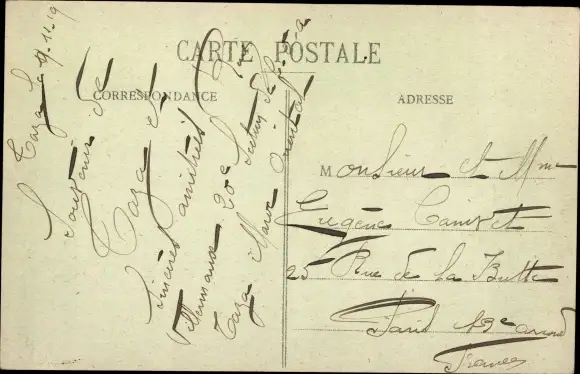 CARTE POSTALE
CORRESPONDANCE
ADRESSE
Taza le 9.11.19
Souvenir de
Taza et
Sincères amitiés
20e
Taza Maroc Oriental
Monsieur et Mme
Eugène
25 Rue de la Butte
Paris 13e arrond
France